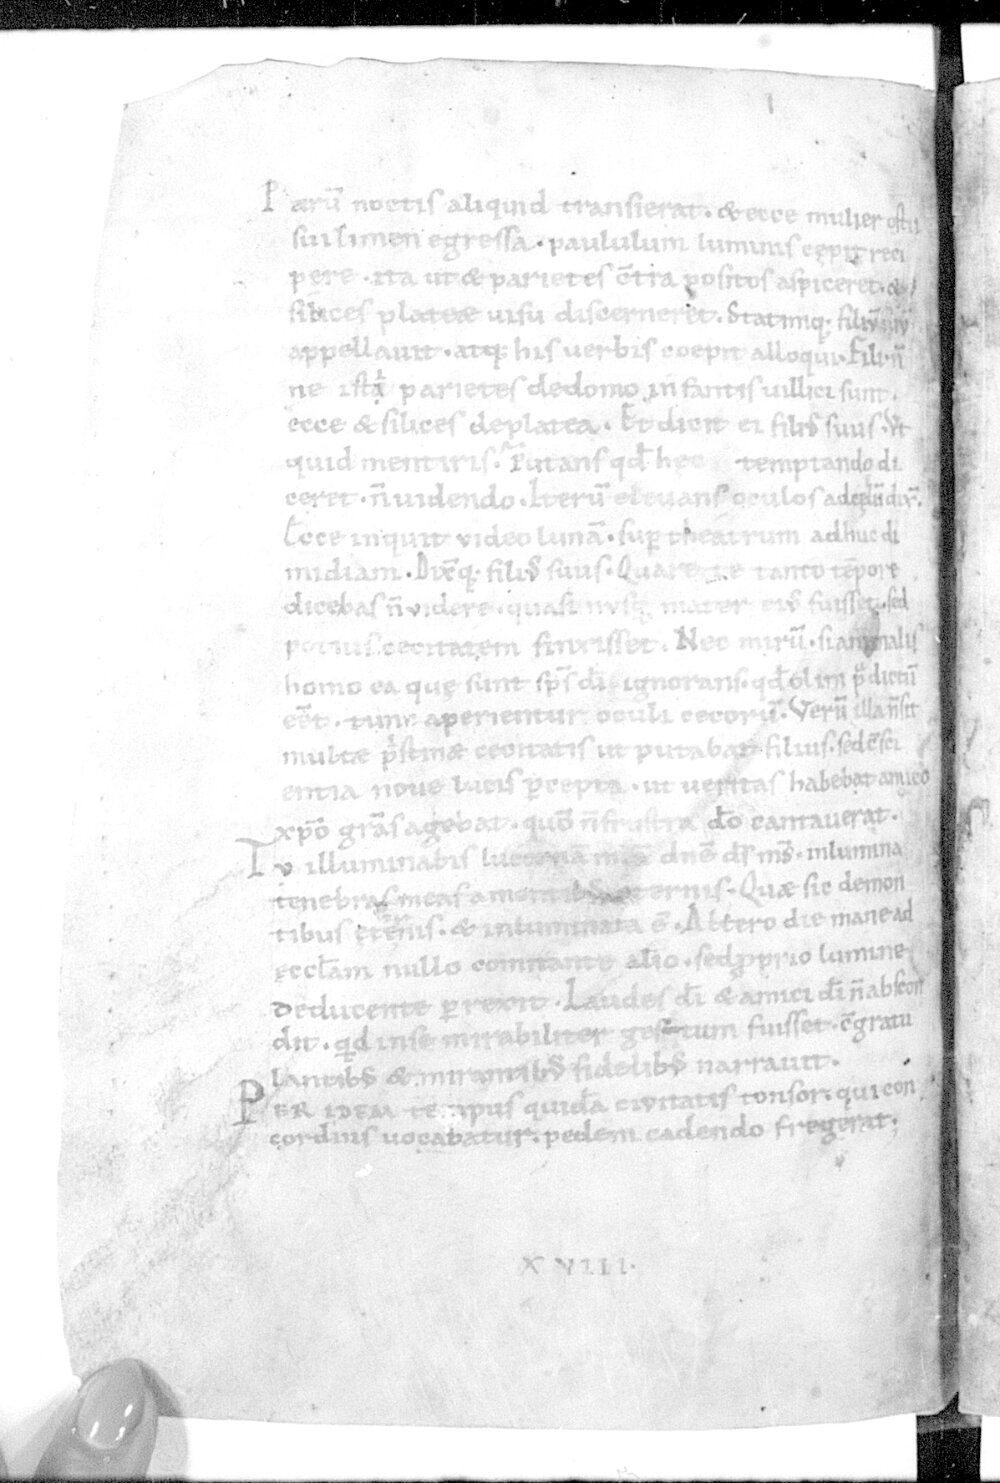 Parū noctis aliquid transierat. & ecce mulier ostii
sui limen egressa. paululum luminis cępit reci
pere. ita ut & parietes c̄tra positos aspiceret. &
silices plateæ uisu discerneret. Statimq; filiū suū
appellauit. atq; his uerbis coepit alloqui. Fili. n̄
ne isti parietes dedomo infantis uillici sunt.
ecce & silices deplatea. Et dicit ei fili᷒ suus. Vt
quid mentiris. Putans qđ hec temptando di
ceret. n̄ uidendo. Iterū eleuans oculos
Ecce inquit video lunā. sup theatrum adhuc di
midiam. Dixitq; fili᷒ suus. Quare te tanto tēpore
dicebas n̄ videre. quasi n̄ mater ei᷒ fuisset. sed
potius cecitatem finxisset. Nec mirū. si animalis
homo ea quę sunt sp̄s dī ignorans. qđ olim p̄dictū
eēt. tunc aperientur oculi cecorū. Verū illa n̄ sit
multæ p̄stinæ cecitatis ut putabat filius. sed c̄sci
entia noue lucis p̄cepta. ut veritas habebat amico
xp̄o grās agebat. quō n̄ frustra dō cantauerat.
Tv illuminabis lucernā meā dn̄e dš mš. inlumina
tenebras meas Quæ sic demon
tibus et̄nis. & inluminata ē. Altero die mane ad
eccłam nullo comitante alio. sed p̄prio lumine
deducente perrexit. Laudes dī & amici dī n̄ abscon
dit. qđ in se mirabiliter gestum fuisset. c̄gratu
lantib᷒ & mirantib᷒ fidelib᷒ narrauit.
PER IDEM tempus quidā ciuitatis tonsor. qui con
cordius uocabatur. pedem cadendo fregerat.
XVIIII.